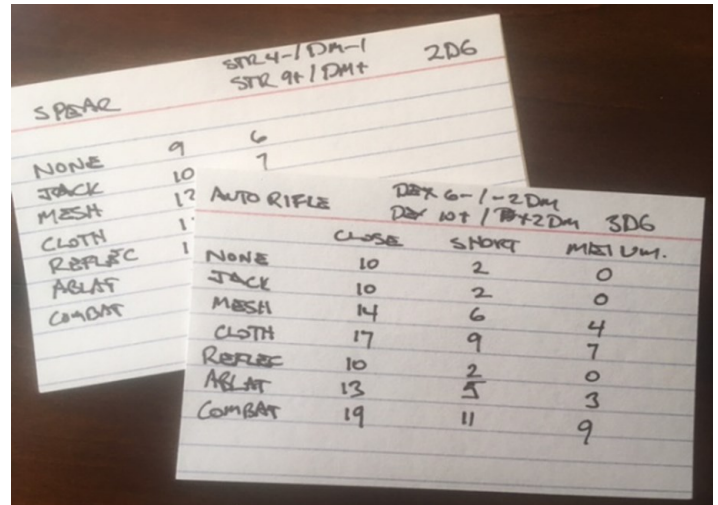 STR 4-/DM-1 2D6
STR 9+/DM+
SPEAR
NONE 9 6
JACK 10 7
MESH 12
CLOTH
REFLEC
ABLAT
COMBAT
AUTO RIFLE DEX 6-/-2DM
DEX 10+/+2DM 3D6
CLOSE SHORT MEDIUM.
NONE 10 2 0
JACK 10 2 0
MESH 14 6 4
CLOTH 17 9 7
REFLEC 10 2 0
ABLAT 13 5 3
COMBAT 19 11 9